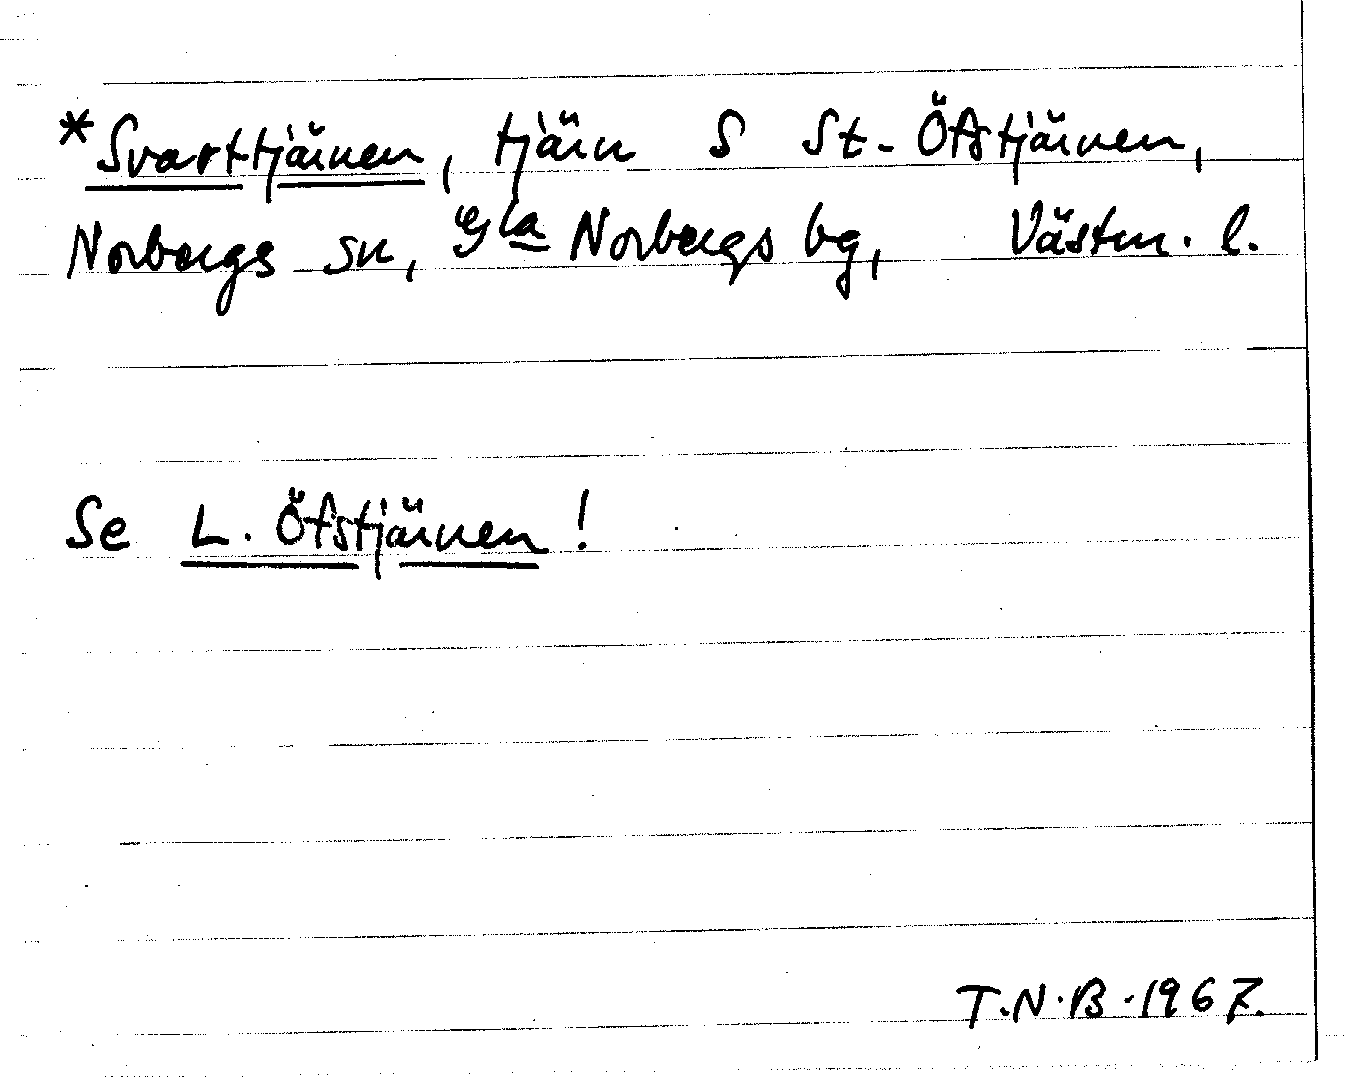 *Svarttjärnen, tjärn S St. Öfstjärnen,
Norbergs sn, Norbergs bg, Västm. l.
Se L. Öfstjärnen!
T.N.B. 1967.